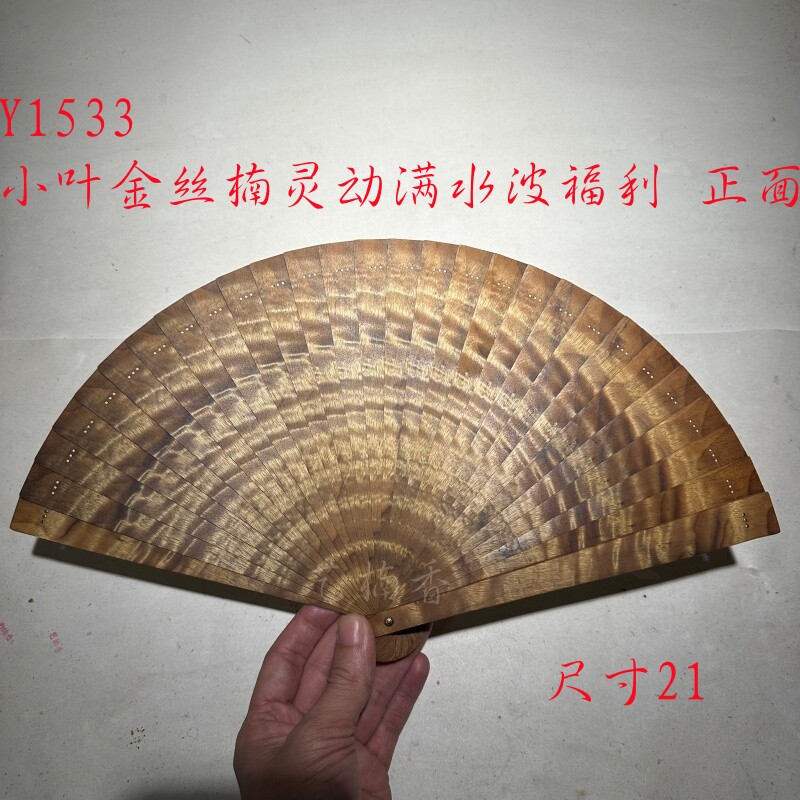 Y1533
小叶金丝楠灵动满水波福利 正面
楠香
尺寸21